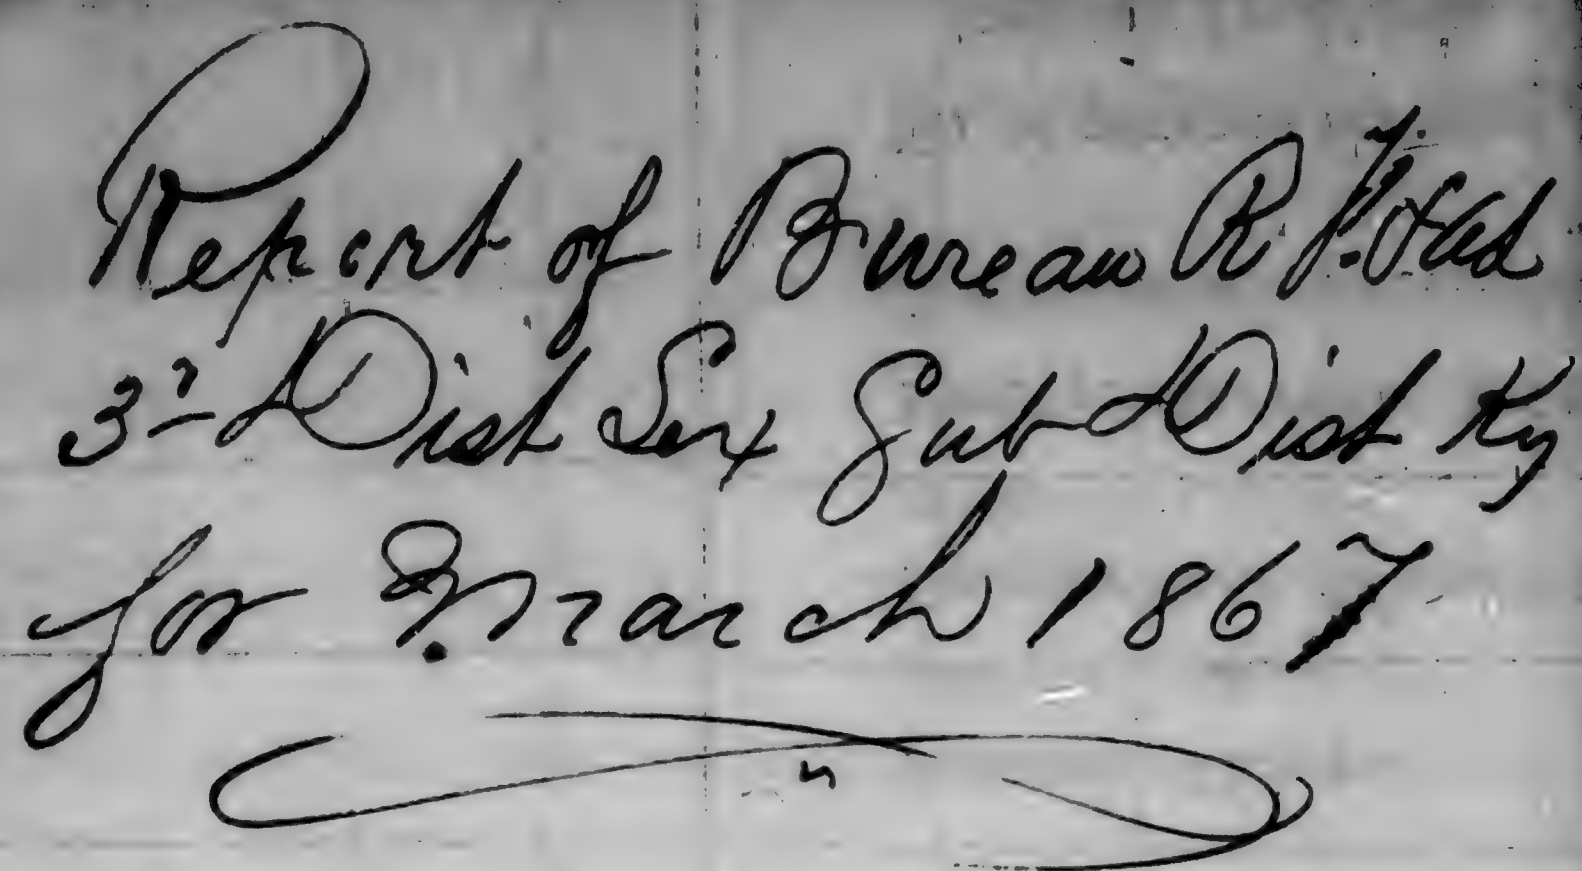 Report of Bureau R. F. & A L
3r Dist Lex Sub Dist Ky
for March 1867